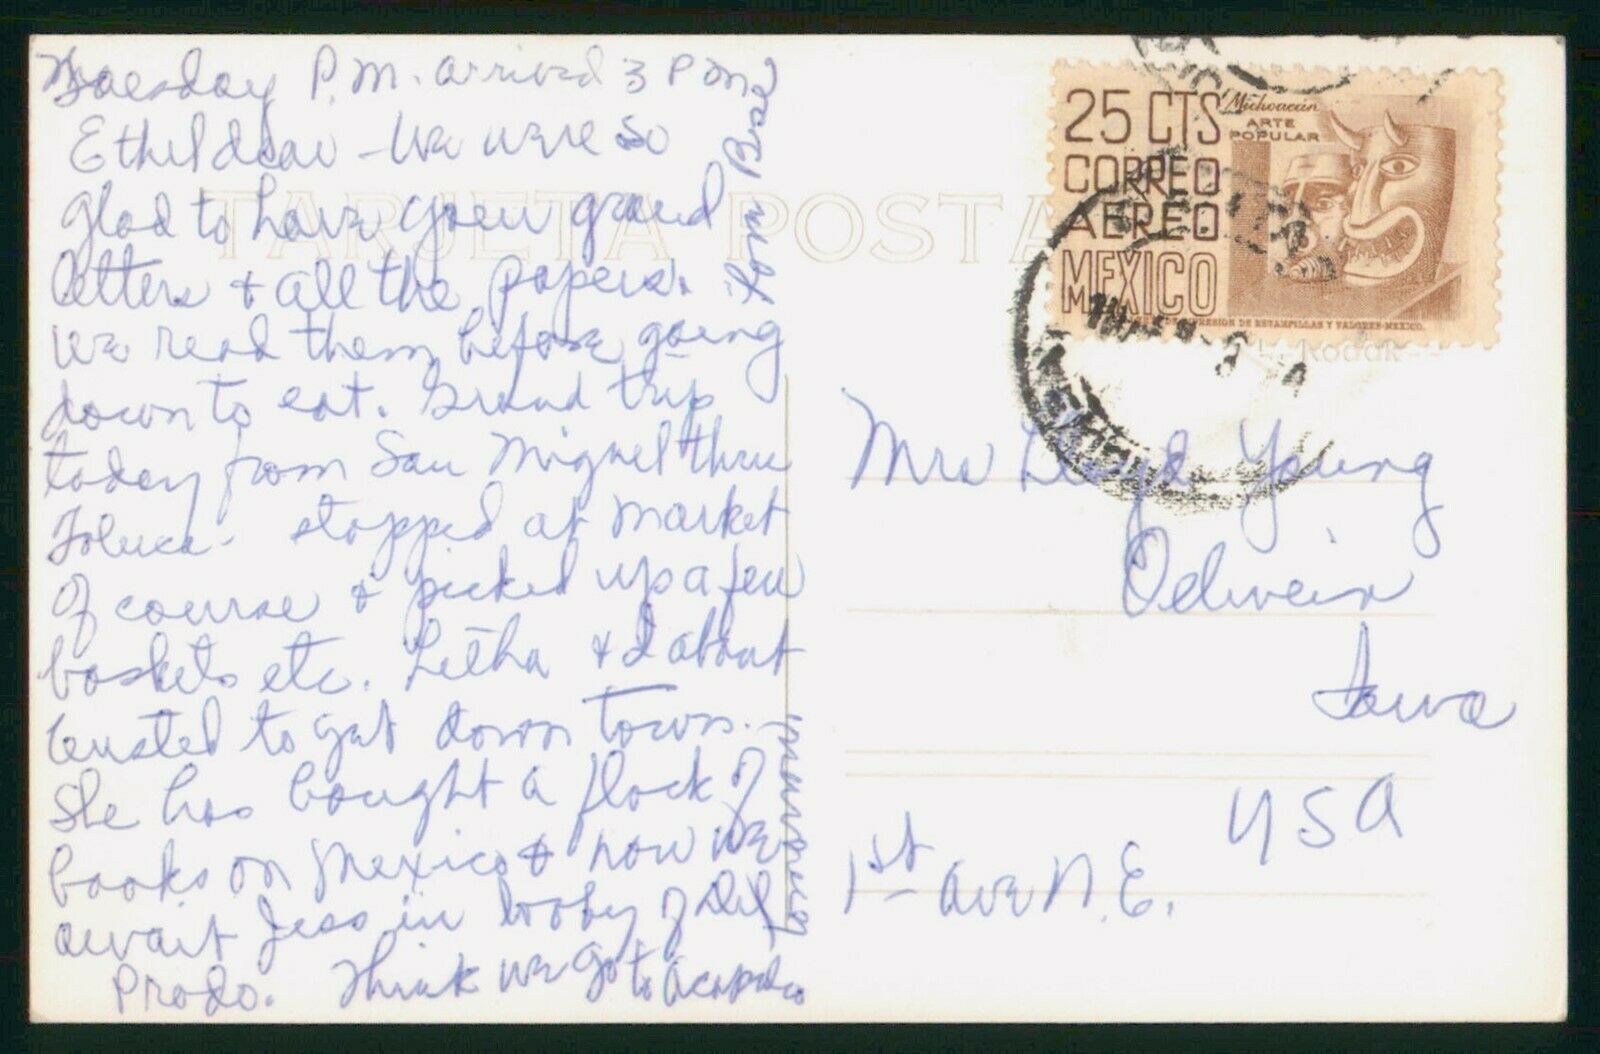 Tuesday P.M. arrived 3 P M
Ethel dear - We were so
glad to have your grand
letters + all the papers.
We read them before going
down to eat. Grand trip
today from San Miguel thru
Toluca - stopped at market
of course + picked up a few
baskets etc. Letha + I about
busted to get down town.
She has bought a flock of
books on Mexico + now we
await Jess in lobby of Del
Prado. Think we go to Acapulco
in morning
Love
TARJETA POSTAL
25 CTS
CORREO
AEREO
MEXICO
Michoacán
ARTE
POPULAR
IMPRESION DE ESTAMPILLAS Y VALORES-MEXICO.
Kodak
Mrs Lloyd Young
Oelwein
Iowa
USA
1st Ave N.E.